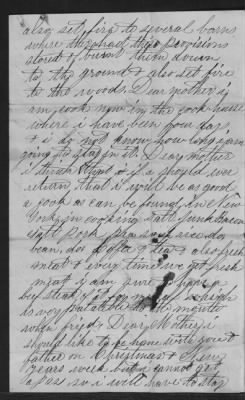 also set fire to several barns
where they had their provisions
stored & burnt them down
to the ground & also set fire
to the woods. Dear mother i
am cook now in the cook house
where i have been four days
& i do not know how long i am
going to stay in it. Dear mother
i think that if i should ever
return that i will be as good
a cook as can be found in New
York in cooking salt junk bacon
salt pork pea soup rice do
bean do coffee & tea & also fresh
meat & every time we get fresh
meat i am sure to have a
beef steak for my self which
is very palatable to the mouth
when fried. Dear Mother i
should like to be home with you &
father on Christmas & New
years week but i cannot get
a pass so i will have to stay